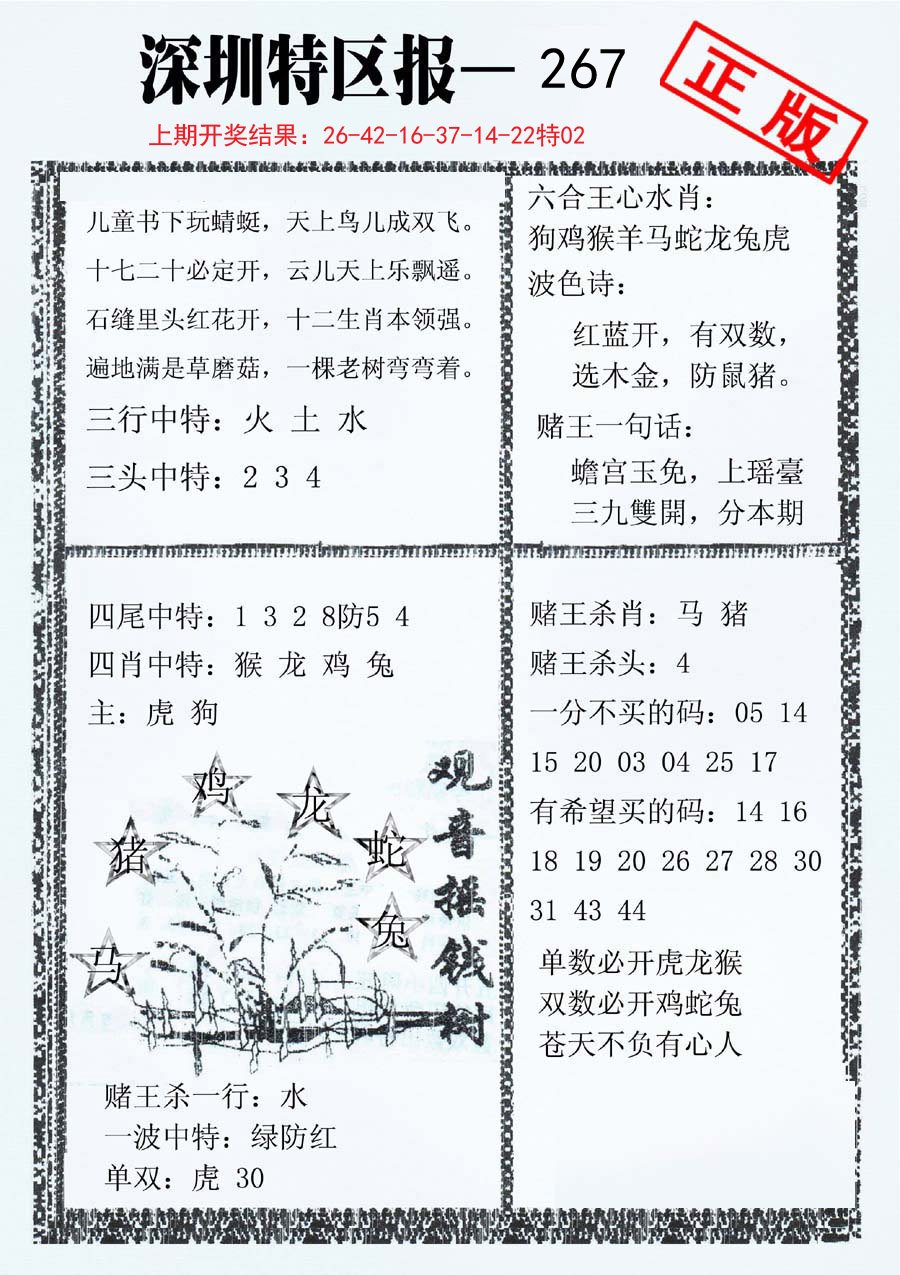 深圳特区报— 267
正版
上期开奖结果：26-42-16-37-14-22特02
儿童书下玩蜻蜓，天上鸟儿成双飞。
十七二十必定开，云儿天上乐飘遥。
石缝里头红花开，十二生肖本领强。
遍地满是草磨菇，一棵老树弯弯着。
三行中特：火 土 水
三头中特：2 3 4
六合王心水肖：
狗鸡猴羊马蛇龙兔虎
波色诗：
红蓝开，有双数，
选木金，防鼠猪。
赌王一句话：
蟾宫玉免，上瑶臺
三九雙開，分本期
四尾中特：1 3 2 8防5 4
四肖中特：猴 龙 鸡 兔
主：虎 狗
鸡
龙
猪
蛇
兔
马
观音摇钱树
赌王杀一行：水
一波中特：绿防红
单双：虎 30
赌王杀肖：马 猪
赌王杀头：4
一分不买的码：05 14
15 20 03 04 25 17
有希望买的码：14 16
18 19 20 26 27 28 30
31 43 44
单数必开虎龙猴
双数必开鸡蛇兔
苍天不负有心人